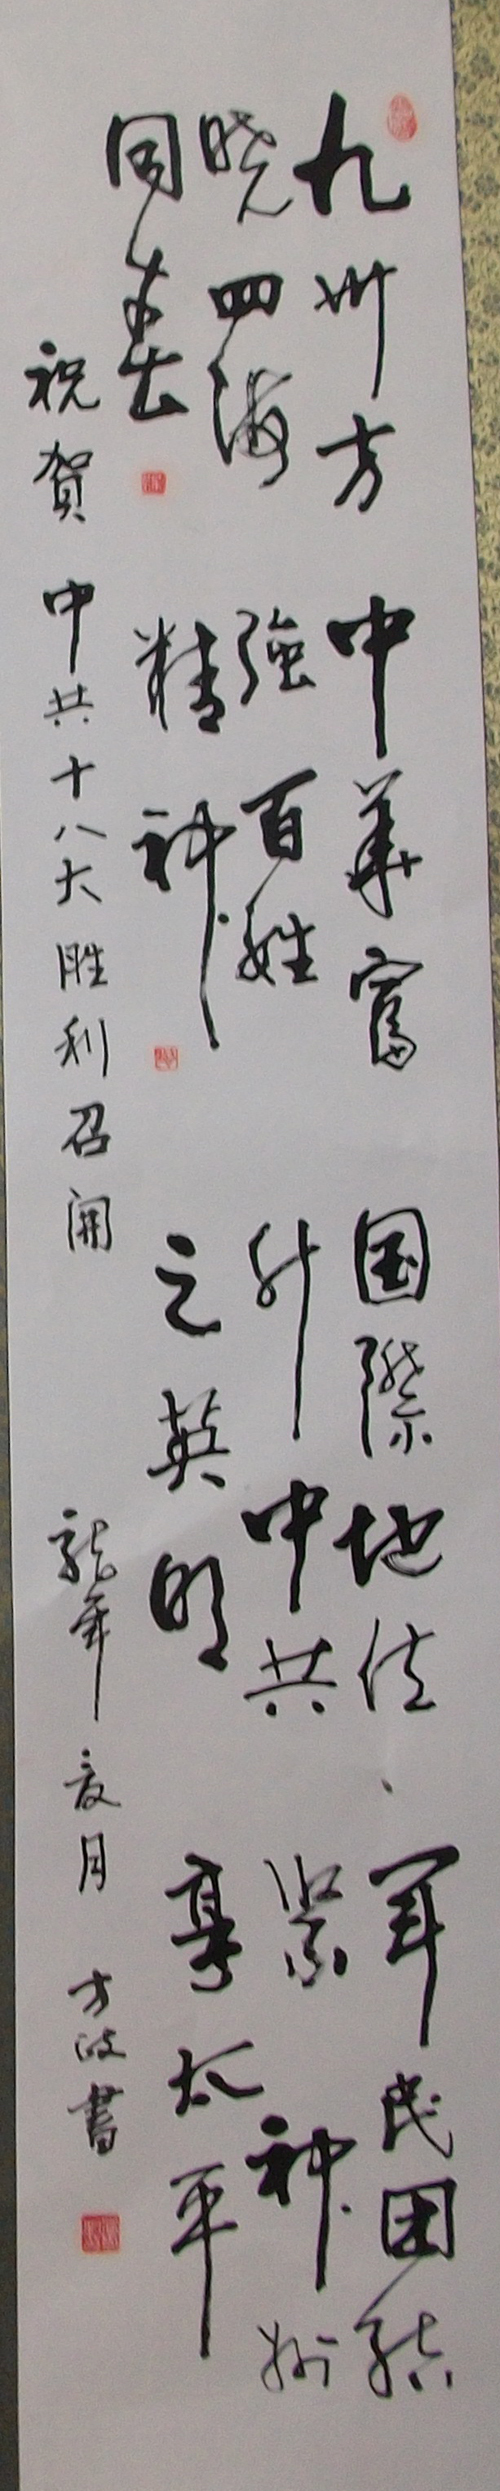 九州方
晓四海
同春
中華富
强百姓
精神
国際地位
升中共
之英明
军民团结
紧神州
享太平
祝賀 中共十八大胜利召開
龍年夏月 方書